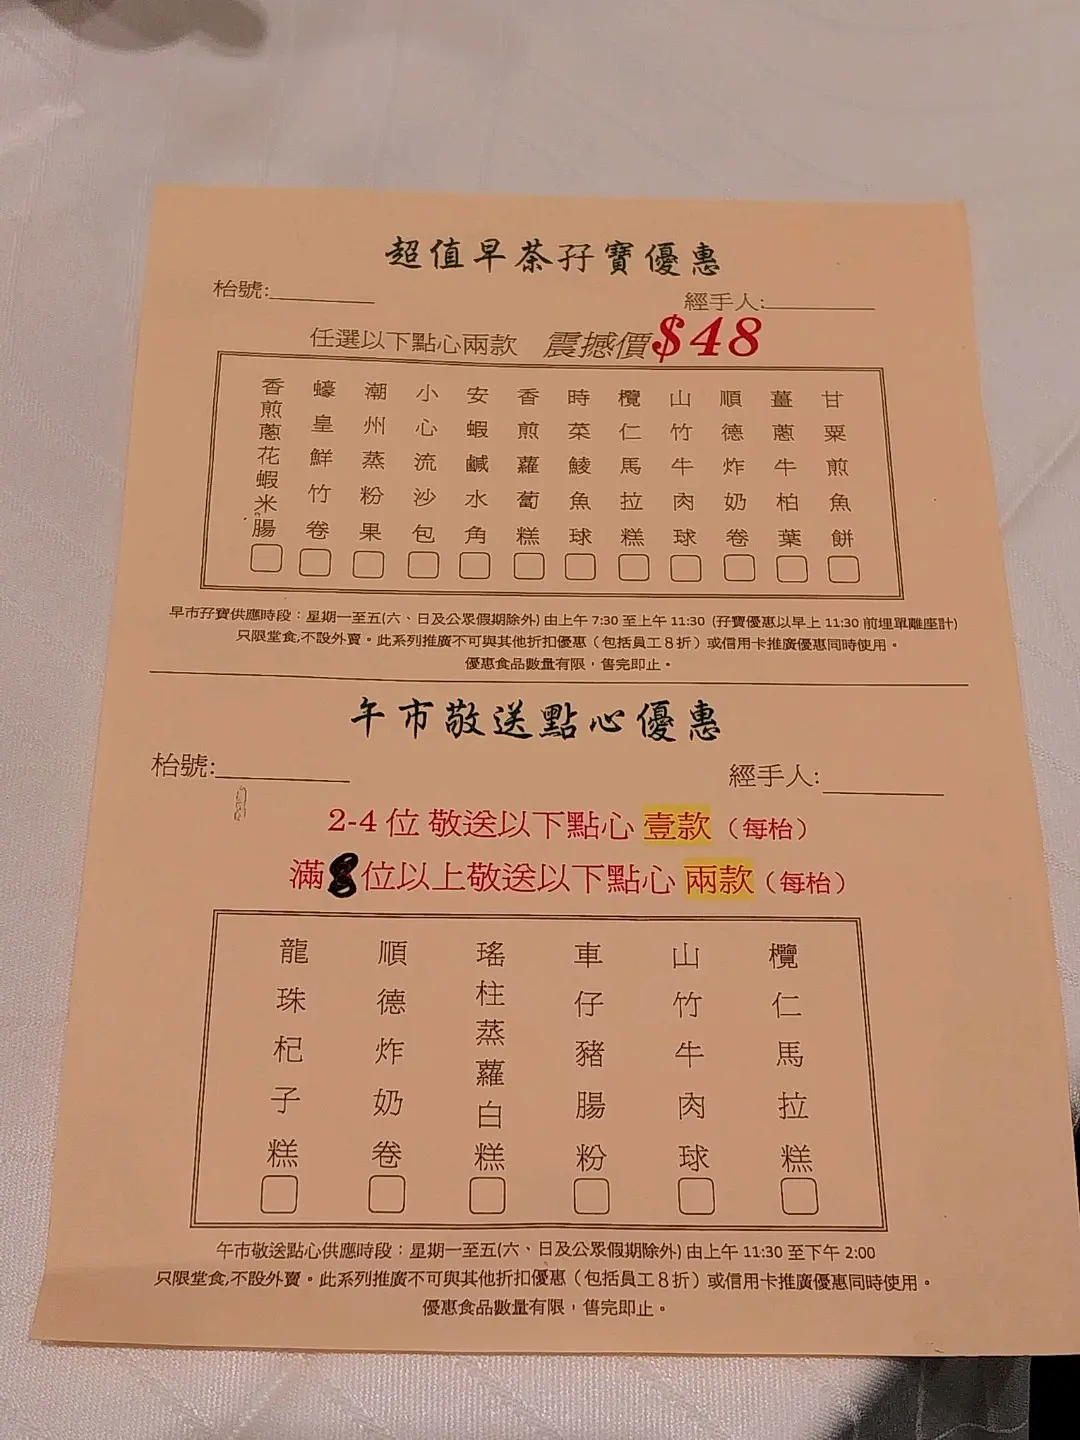 超值早茶孖寶優惠
枱號:
經手人:
任選以下點心兩款 震撼價$48
香煎蔥花蝦米腸
蠔皇鮮竹卷
潮州蒸粉果
小心流沙包
安蝦鹹水角
香煎蘿蔔糕
時菜鯪魚球
欖仁馬拉糕
山竹牛肉球
順德炸奶卷
薑蔥牛柏葉
甘粟煎魚餅
早市孖寶供應時段：星期一至五(六、日及公眾假期除外) 由上午 7:30 至上午 11:30 (孖寶優惠以早上 11:30 前埋單離座計)
只限堂食,不設外賣。此系列推廣不可與其他折扣優惠（包括員工８折）或信用卡推廣優惠同時使用。
優惠食品數量有限，售完即止。
午市敬送點心優惠
枱號:
經手人:
2-4 位 敬送以下點心 壹款（每枱）
滿8位以上敬送以下點心 兩款（每枱）
龍珠杞子糕
順德炸奶卷
瑤柱蒸蘿白糕
車仔豬腸粉
山竹牛肉球
欖仁馬拉糕
午市敬送點心供應時段：星期一至五(六、日及公眾假期除外) 由上午 11:30 至下午 2:00
只限堂食,不設外賣。此系列推廣不可與其他折扣優惠（包括員工８折）或信用卡推廣優惠同時使用。
優惠食品數量有限，售完即止。